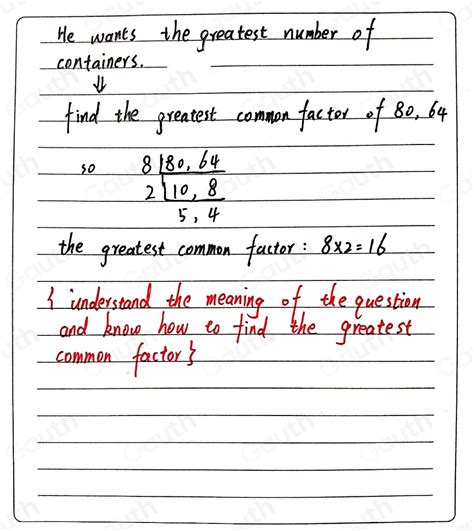 He wants the greatest number of
containers.
⇓
find the greatest common factor of 80, 64
so 8 | 80, 64
2 | 10, 8
5, 4
the greatest common factor : 8×2=16
{ understand the meaning of the question
and know how to find the greatest
common factor }